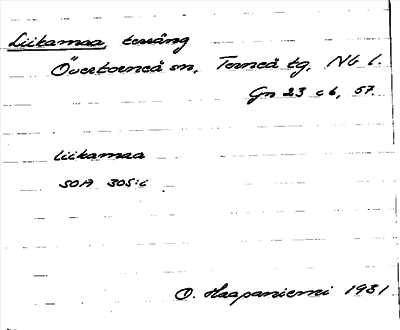 Liikamaa, terräng
Övertorneå sn, Torneå tg, Nb l.
Gn 23 c 6, 57
Liikamaa
SOA 305:c
O. Haapaniemi 1931